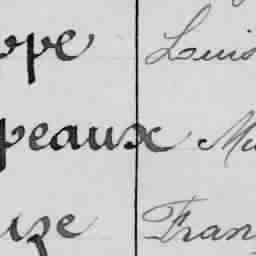 ppe Luis
peaux Mu
uze Fran